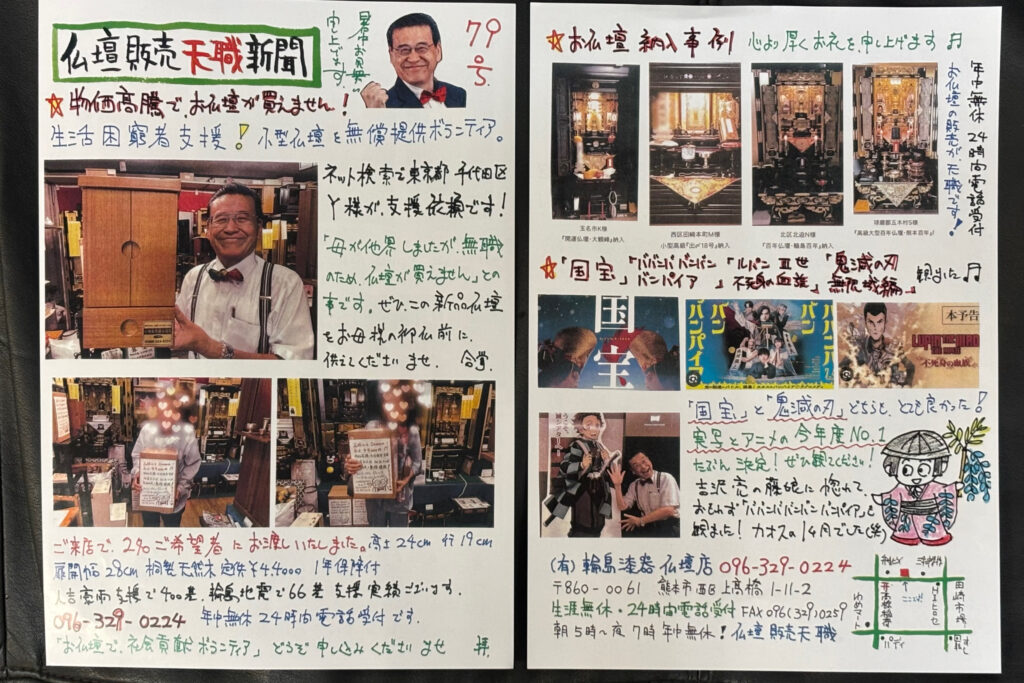 仏壇販売天職新聞
暑中お見舞い
申し上げます。
79
☆物価高騰でお仏壇が買えません!
生活困窮者支援!小型仏壇を無償提供ボランティア。
ネット検索で東京都千代田区
Y様が、支援依頼です!
「母が他界しましたが、無職
のため、仏壇が買えません」との
事です。ぜひこの新品仏壇
をお母様の御仏前に、
供えてくださいませ 合掌
ご来店で、2名ご希望者にお渡しいたしました。高さ24cm 行19cm
扉開幅28cm 桐製天然木 定価¥44000 1年保障付
人吉豪雨支援で400基、輪島地震で66基支援実績ございます。
096-329-0224 年中無休24時間電話受付です。
「お仏壇で、社会貢献ボランティア」どうぞ申し込みくださいませ 拝
☆お仏壇納入事例 心より厚くお礼を申し上げます♬
年中無休 24時間電話受付
お仏壇の販売が、天職です!
玉名市K様
『開運仏壇・大観峰』納入
西区田崎本町M様
小型高級『出が18号』納入
北区北迫N様
『百年仏壇・輪島百年』納入
球磨郡五木村S様
『高級大型百年仏壇・熊本百年』
☆「国宝」「ババンババンバンバンパイア」「ルパン三世 不死身の血族」「鬼滅の刃 無限城編」観ました♬
国宝
バババンバン
バンパイア
本予告
LUPIN THE IIIRD
不死身の血族
「国宝」と「鬼滅の刃」どちらも、とても良かった!
実写とアニメの今年度No.1
たぶん決定!ぜひ観てください!
吉沢亮の藤娘に惚れて、
おもわず「ババンババンバンバンパイア」も
観ました!カオスの1ヶ月でした(笑)
(有)輪島漆器仏壇店 096-329-0224
〒860-0061 熊本市西区上高橋1-11-2
生涯無休・24時間電話受付 FAX096(329)0259
朝5時〜夜7時年中無休!仏壇販売天職
田崎市場
ゆめマート